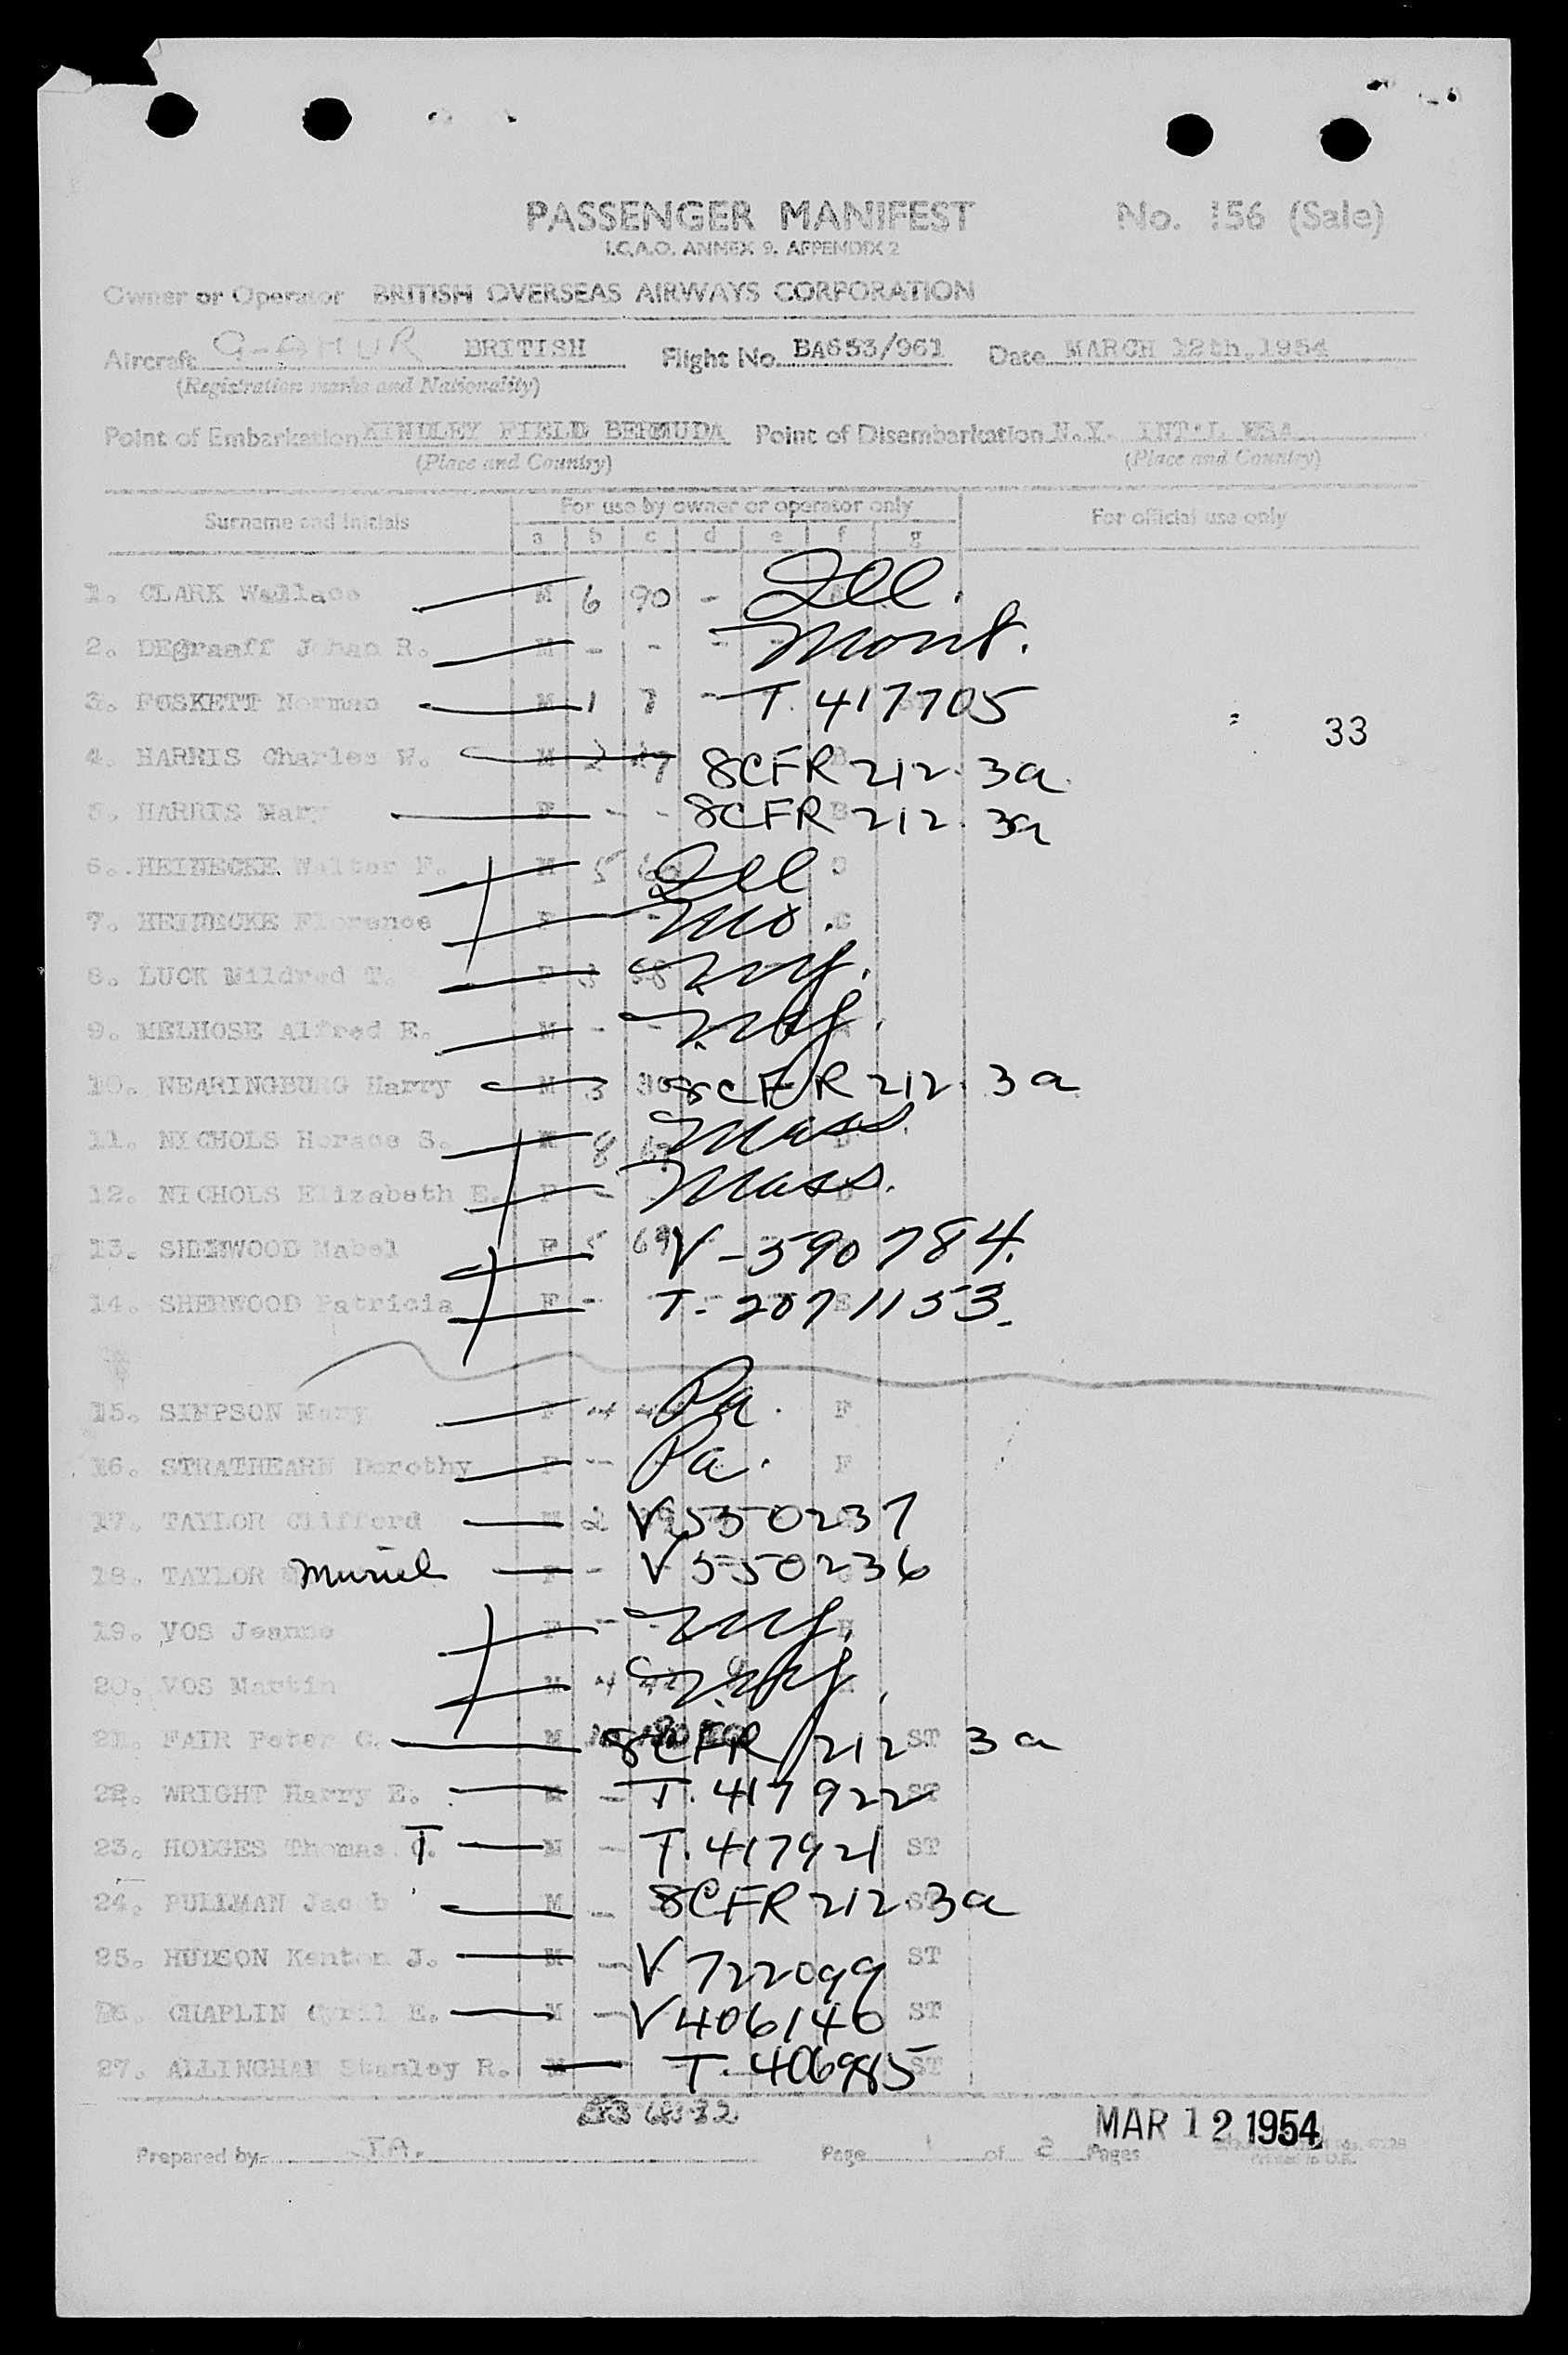 PASSENGER MANIFEST No. 156 (Sale)
I.C.A.O. ANNEX 9, APPENDIX 2
Owner or Operator BRITISH OVERSEAS AIRWAYS CORPORATION
Aircraft G-AHUR BRITISH Flight No. BA653/961 Date MARCH 12th.1954
(Registration marks and Nationality)
Point of Embarkation KINDLEY FIELD BERMUDA Point of Disembarkation N.Y. INT'L USA
(Place and Country) (Place and Country)
Surname and initials For use by owner or operator only For official use only
a b c d e f g
1. CLARK Wallace M 6 90 - Ill.
2. DEgraaff Johan R. M - - - Mont.
3. FOSKETT Norman M 1 7 - T. 417705
33
4. HARRIS Charles W. M 2 27 8CFR 212.3a B
5. HARRIS Mary F - - 8CFR 212.3a B
6. HEINECKE Walter F. M 5 Ill C
7. HEINECKE Florence F - Mo. C
8. LUCK Mildred T. F 3 38 N.Y.
9. MELHOSE Alfred E. M - - N.Y.
10. NEARINGBURG Harry M 3 30 8CFR 212.3a
11. NICHOLS Horace S. M 8 Mass. D
12. NICHOLS Elizabeth E. F - Mass. D
13. SHERWOOD Mabel F 5 69 V-590784.
14. SHERWOOD Patricia F - T-2071153. E
15. SIMPSON Mary F 4 Pa. F
16. STRATHEARN Dorothy F - Pa. F
17. TAYLOR Clifford M 2 V550237
18. TAYLOR Muriel F - V550236
19. VOS Jeanne F - N.Y. H
20. VOS Martin M 4 42 N.Y.
21. FAIR Peter C. M 8CFR 212 3a ST
22. WRIGHT Harry E. M - T. 417922 ST
23. HODGES Thomas T M - T. 417921 ST
24. PULLMAN Jacob M - 8CFR 212.3a ST
25. HUDSON Kenton J. M - V722099 ST
26. CHAPLIN Cyril E. M - V406140 ST
27. ALLINGHAM Stanley R. M T. 406985 ST
MAR 12 1954
Prepared by:- Page 1 of 2 Pages
Printed in U.K.